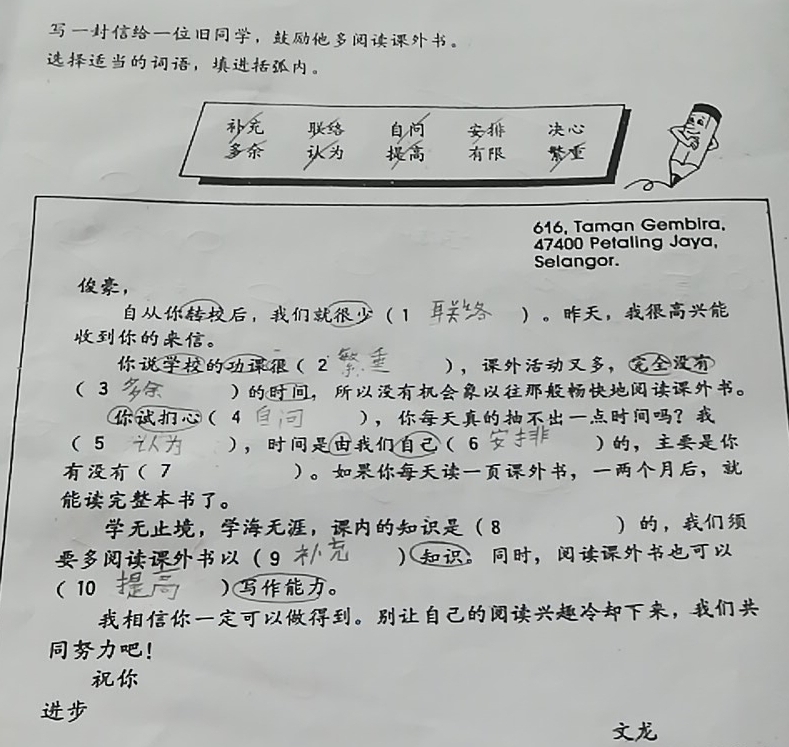 写一封信给一位旧同学，鼓励他多阅读课外书。
选择适当的词语，填进括弧内。
补充 联络 自问 安排 决心
多余 认为 提高 有限 繁重
616, Taman Gembira,
47400 Petaling Jaya,
Selangor.
俊豪，
自从你转校后，我们就很少（1 联络 ）。昨天，我很高兴能
收到你的来信。
你说学校的功课很（2 繁重 ），课外活动又多，完全没有
（3 多余 ）的时间，所以没有机会象以往那般畅快地阅读课外书。
你试扪心（4 自问 ），你每天真的抽不出一点时间吗？我
（5 认为 ），时间是由我们自己（6 安排 ）的，主要是你
有没有（7 ）。如果你每天读一页课外书，一两个月后，就
能读完整本书了。
学无止境，学海无涯，课内的知识是（8 ）的，我们须
要多阅读课外书以（9 补充 ）知识。同时，阅读课外书也可以
（10 提高 ）写作能力。
我相信你一定可以做得到。别让自己的阅读兴趣冷却下来，我们共
同努力吧！
祝你
进步
文龙